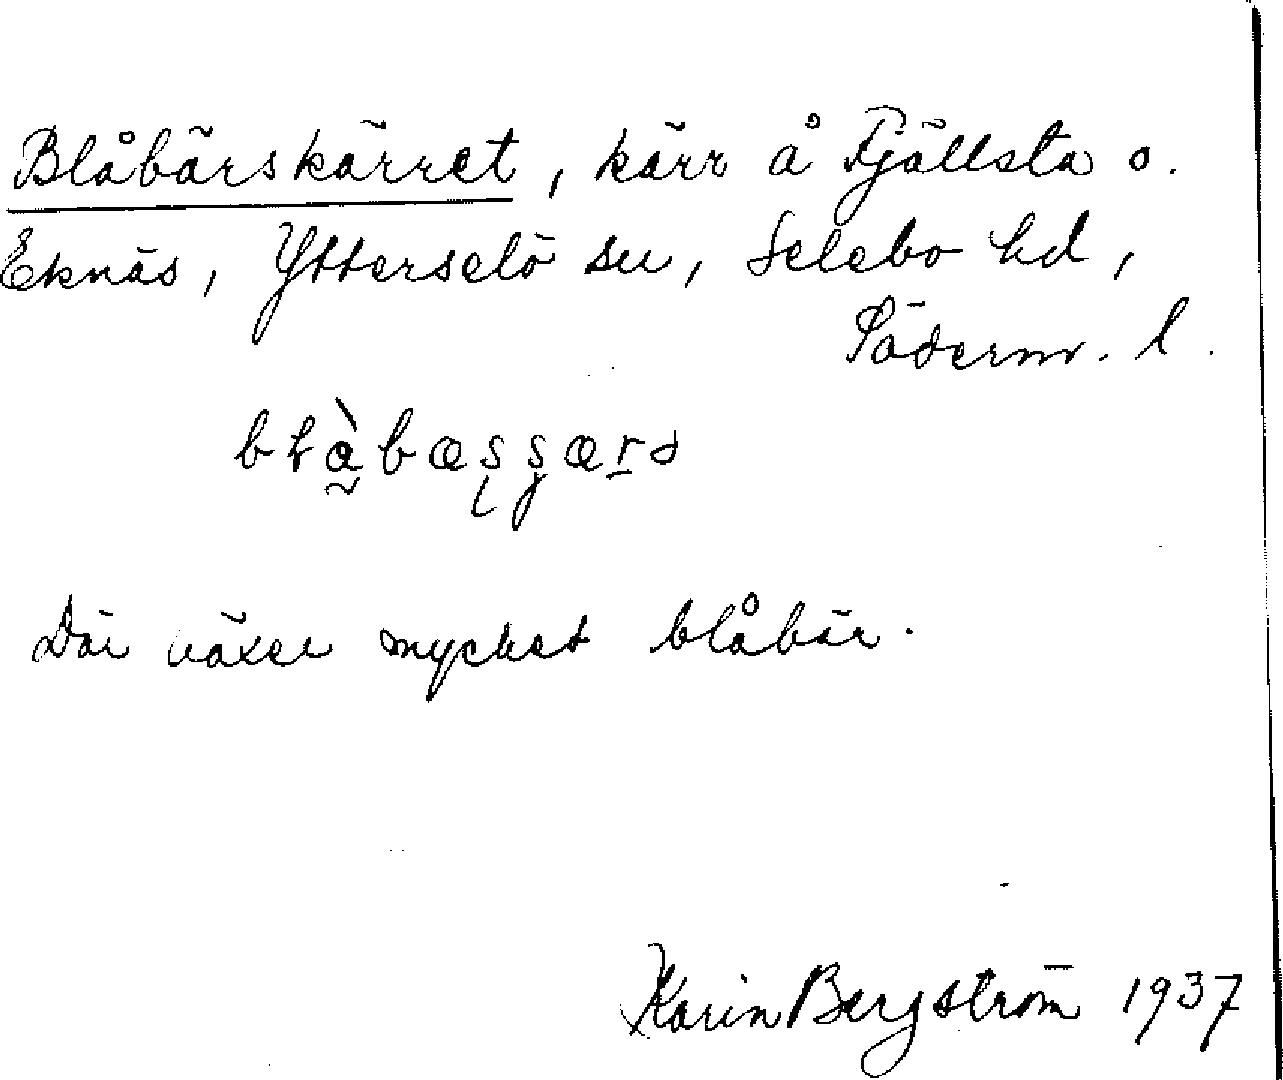 Blåbärskärret, kärr å Fjällsta o.
Eknäs, Ytterselö sn, Selebo hd,
Söderm. l.
Där växer mycket blåbär.
Karin Bergström 1937